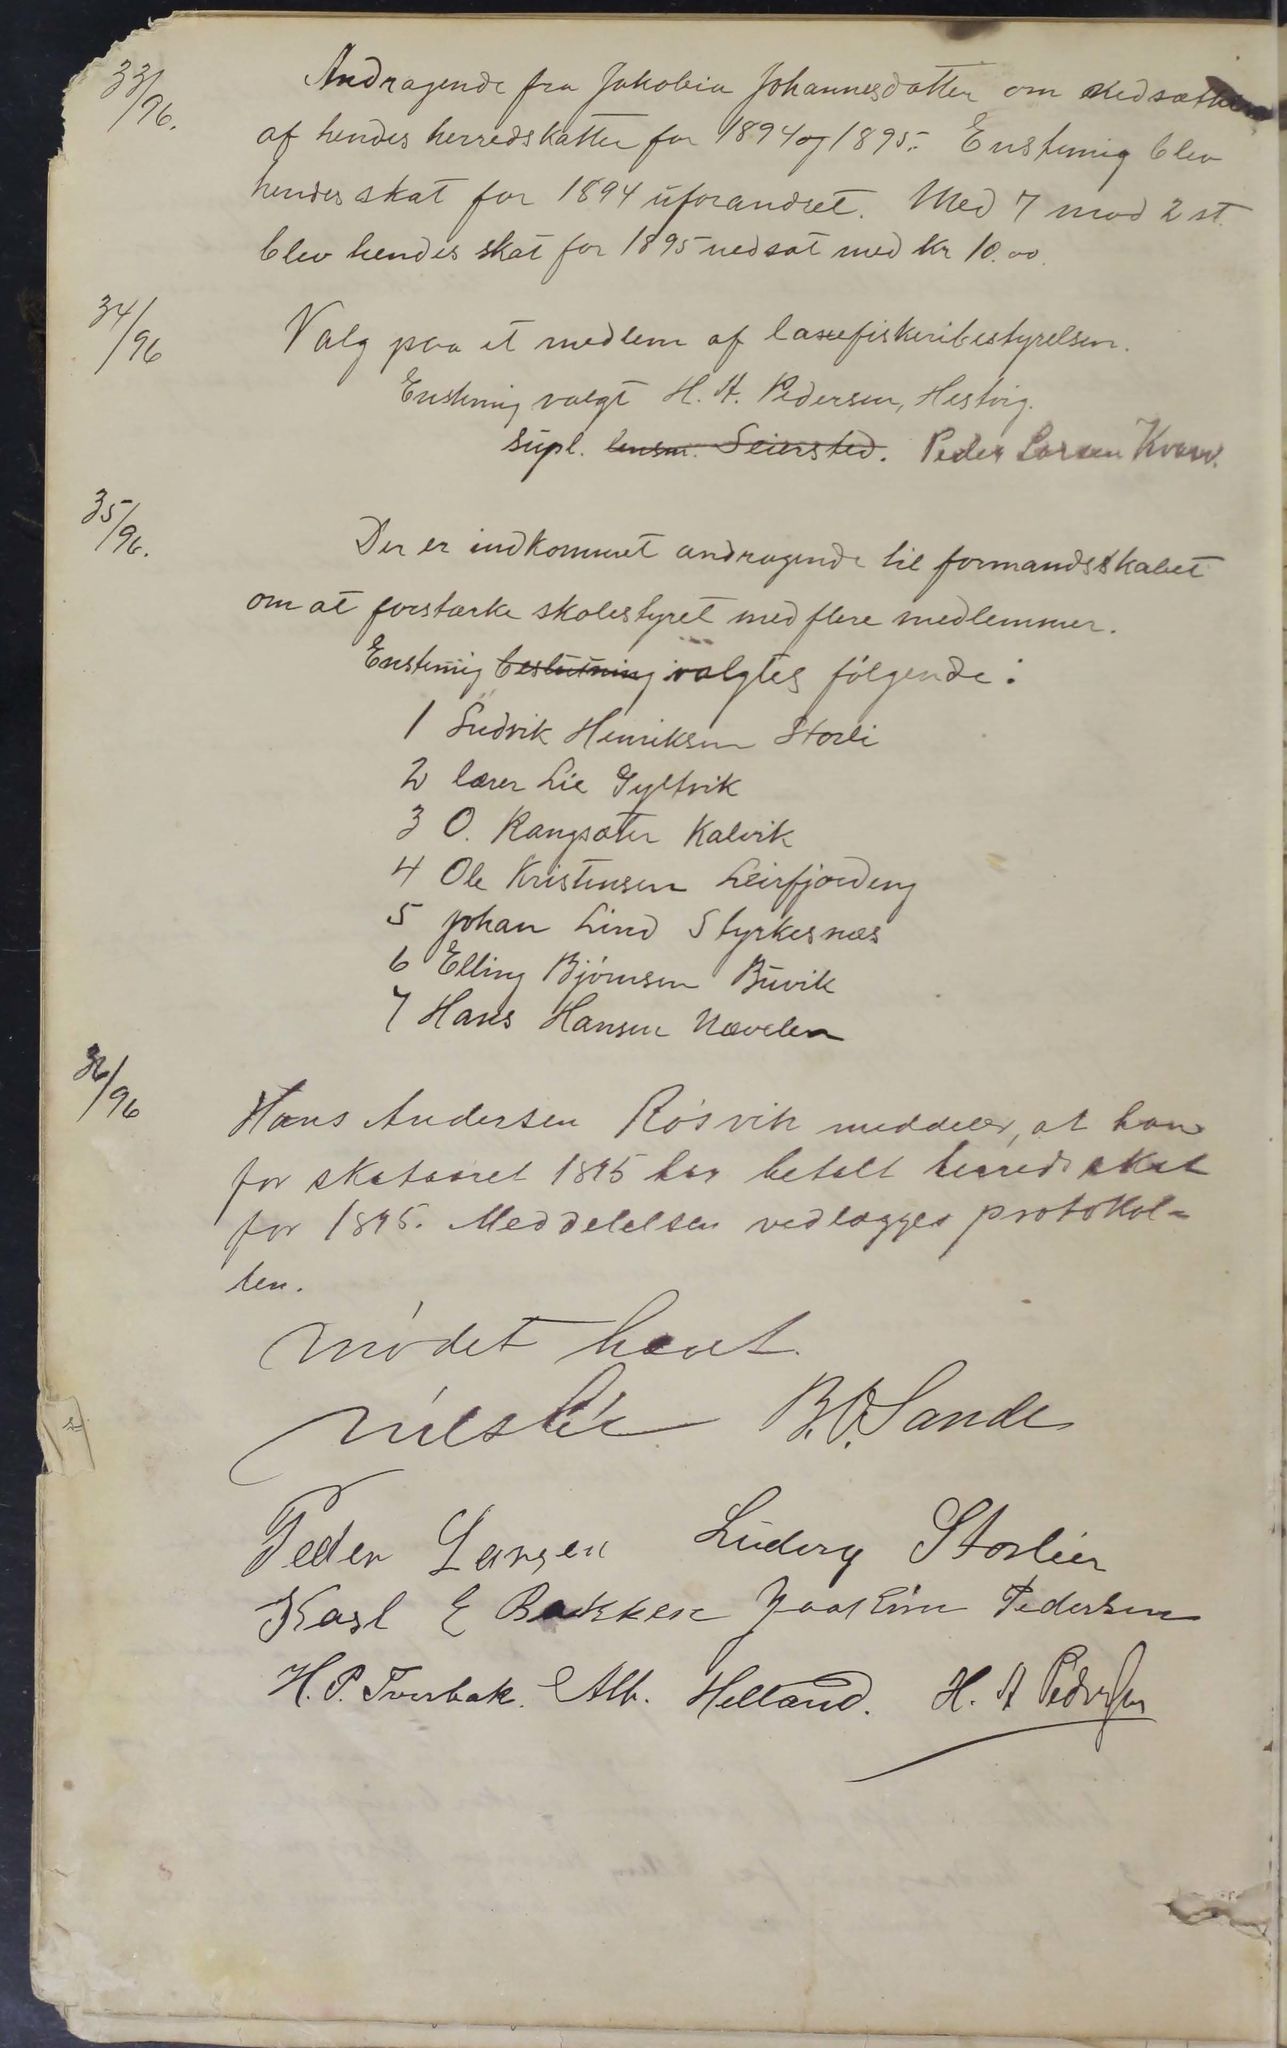 33/96. Andragende fra Jakobia Johannesdatter om nedsættelse
af hendes herredskatter for 1894 og 1895. Enstemig blev
hendes skat for 1894 uforandret. Med 7 mod 2 st.
blev hendes skat for 1895 nedsat med kr 10.00.
34/96 Valg paa et medlem af laxefiskeribestyrelsen.
Enstemig valgt H. A. Pedersen, Hestvig.
Supl. lensm. Seiersted. Peder Larsen Kvarv.
35/96. Der er indkommet andragende til formandsskabet
om at forstærke skolestyret med flere medlemmer.
Enstemig beslutning valgtes følgende:
1 Ludvik Henriksen Storli
2 lærer Lie Gyltvik
3 O. Rangsæter Kalvik
4 Ole Kristensen Leirfjordeng
5 Johan Lind Styrkesnæs
6 Elling Bjørnsen Buvik
7 Hans Hansen Nævelen
36/96 Hans Andersen Røsvik meddeler, at han
for skataaret 1895 har betalt herredsskat
for 1895. Meddelelsen vedlægges protokol-
len.
Mødet hævet.
Nils Lie B. O. Sande
Peder Larsen Ludvig Storlien
Karl E Bakken Joakim Pedersen
H. P. Tverbak. Alb. Helland. H. A Pedersen